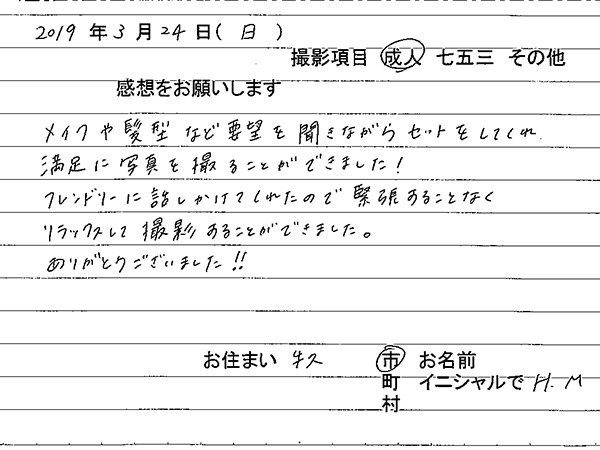 2019 年 3 月 24 日 ( 日 )
撮影項目 成人 七五三 その他
感想をお願いします
メイクや髪型など要望を聞きながらセットをしてくれ
満足に写真を撮ることができました!
フレンドリーに話しかけてくれたので緊張することなく
リラックスして撮影することができました。
ありがとうございました!!
お住まい 市 お名前
町 イニシャルで H.M
村